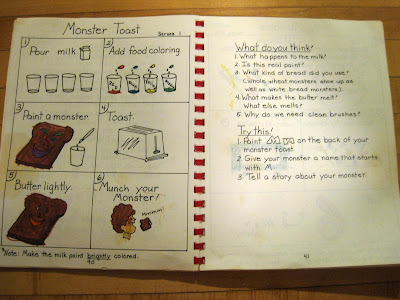 Monster Toast
Serves 1
1) Pour milk
2) Add food coloring.
3) Paint a monster.
4) Toast.
5) Butter lightly.
6) Munch your
Monster!
Mmmmm!
Note: Make the milk paint brightly colored.
40
What do you think?
1. What happens to the milk?
2. Is this real paint?
3. What kind of bread did you use?
(Whole wheat monsters show up as
well as white bread monsters).
4. What makes the butter melt?
What else melts?
5. Why do we need clean brushes?
Try this!
1. Paint on the back of your
monster toast.
2. Give your monster a name that starts
with M.
3. Tell a story about your monster.
41